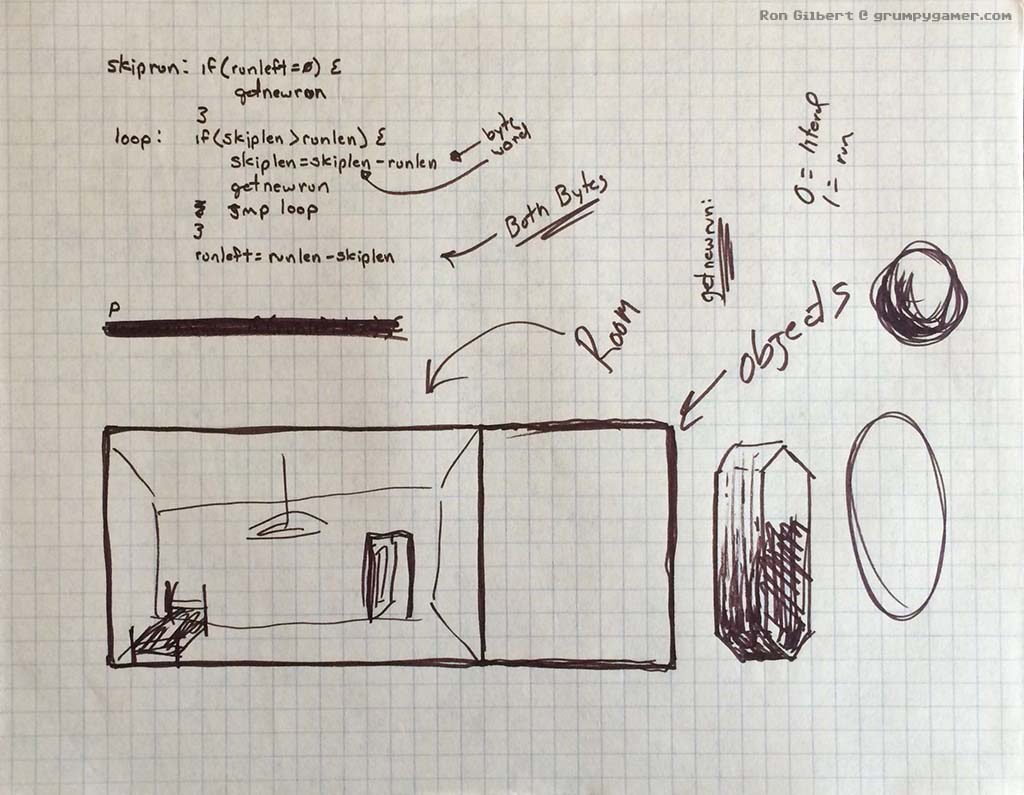 Ron Gilbert @ grumpygamer.com
skiprun: if(runleft=0) {
getnewrun
}
loop: if(skiplen>runlen) {
skiplen=skiplen-runlen
getnewrun
jmp loop
}
runleft=runlen-skiplen
byte
word
Both Bytes
getnewrun:
0= literal
1= run
P
Room
objects